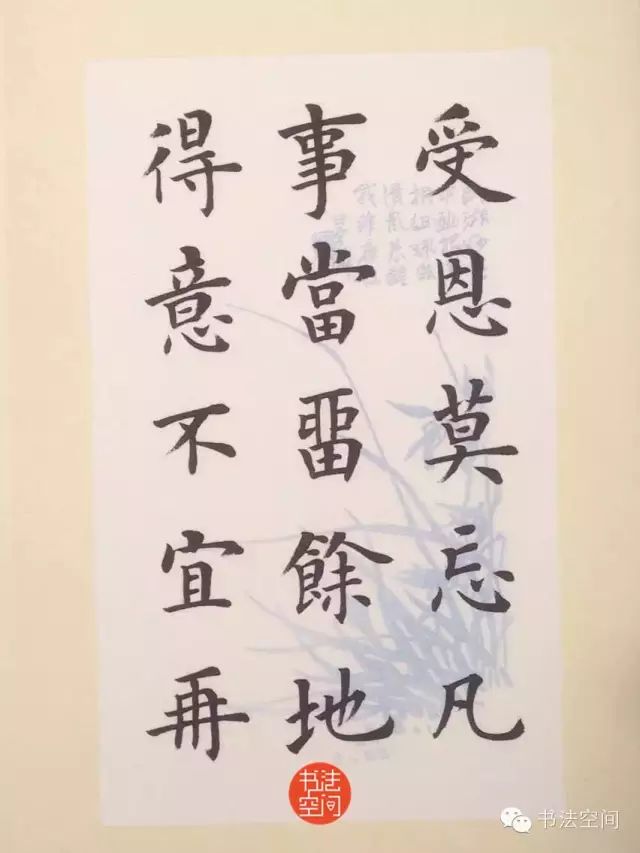 受恩莫忘凡
事當畱餘地
得意不宜再
书法空间
书法空间